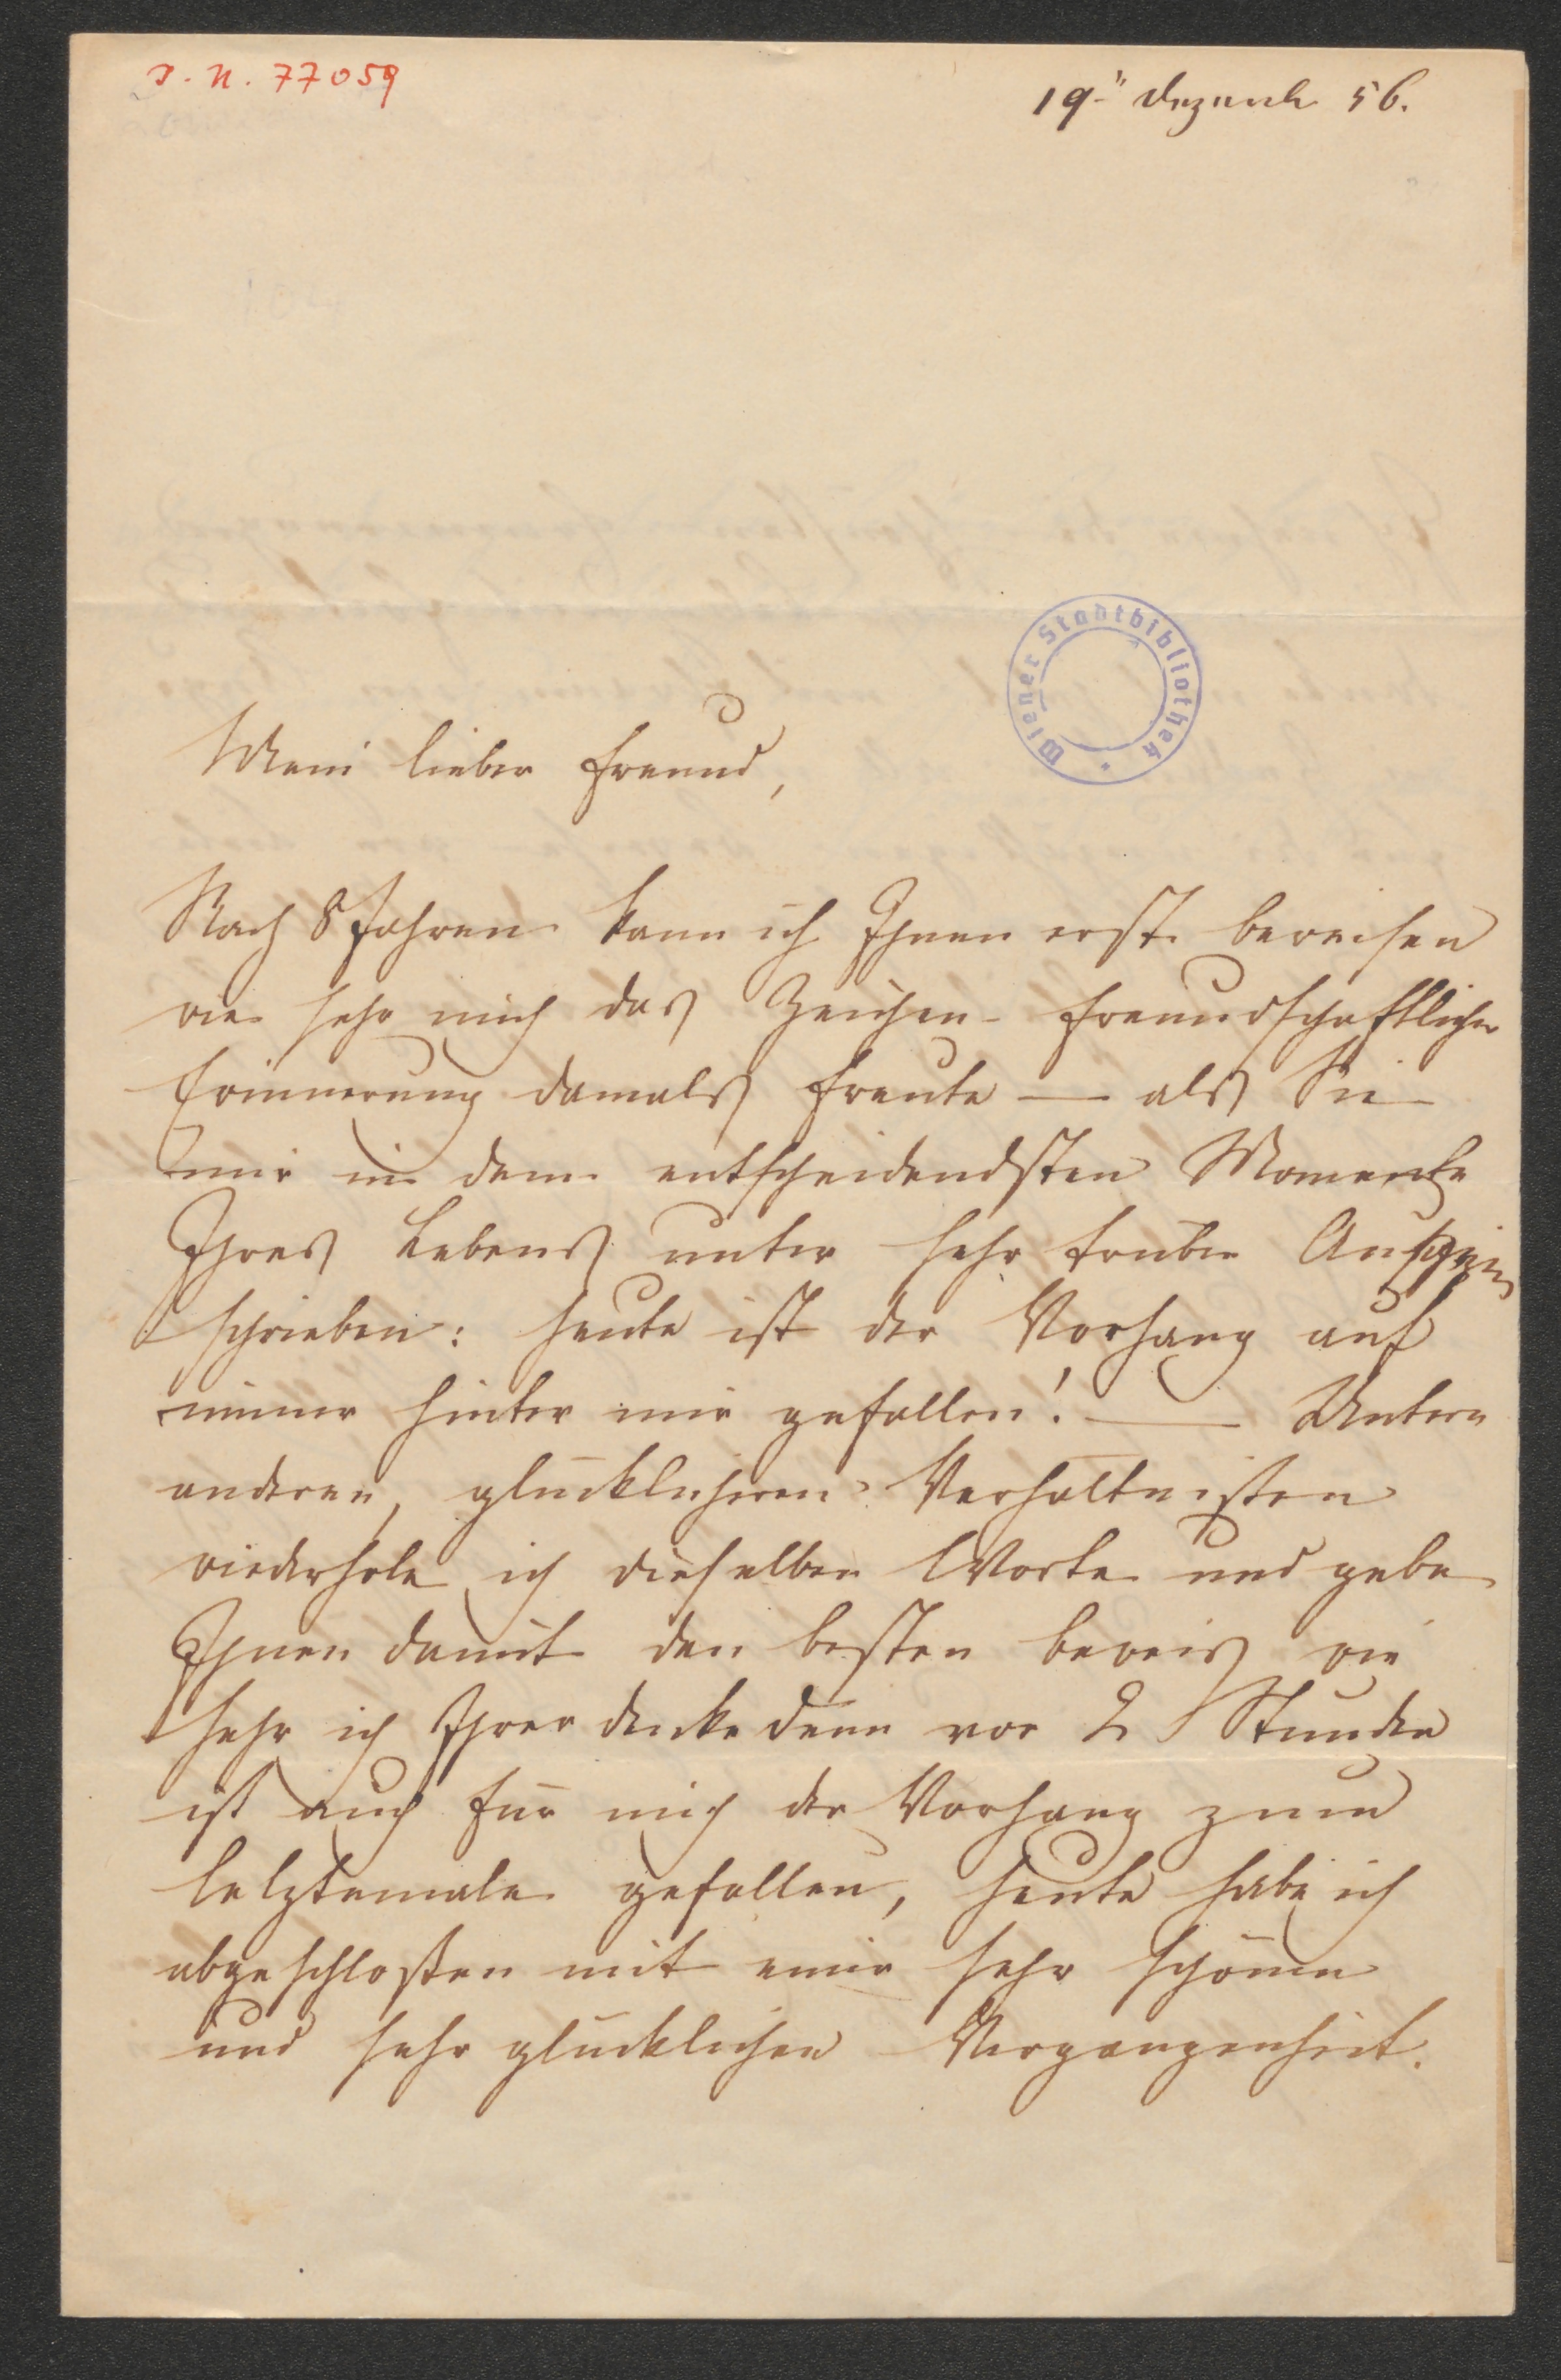 J. N. 77059
19-" Dezemb 56.
Wiener Stadtbibliothek
Mein lieber Freund,
Nach 8 Jahren kann ich Ihnen erst beweisen
wie sehr mich das Zeichen freundschaftlicher
Erinnerung damals freute — als Sie
mir in dem entscheidendsten Momente
Ihres Lebens unter sehr trüben Auspizien
schrieben: heute ist der Vorhang auf
immer hinter mir gefallen! — Untern
anderen, glücklicheren Verhältnißen
wiederhole ich dieselben Worte und gebe
Ihnen damit den besten beweis wie
sehr ich Ihrer denke denn vor 2 Stunden
ist auch für mich der Vorhang zum
letztemale gefallen, heute habe ich
abgeschloßen mit einer sehr schönen
und sehr glücklichen Vergangenheit.